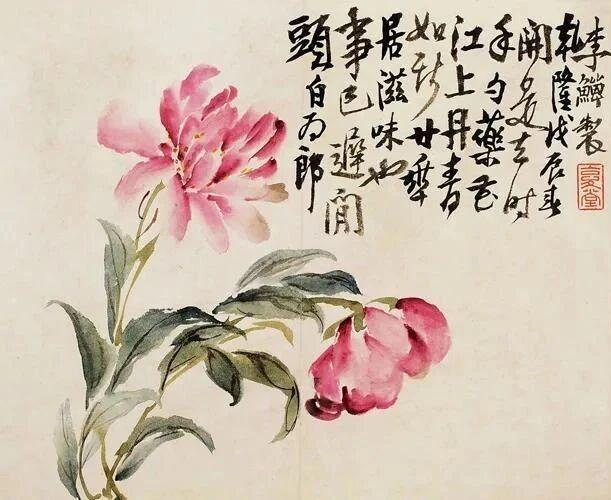 頭白為郎
事已遲閒
居滋味也
如斯廿年
江上丹青
手勺藥花
開是去時
乾隆戊辰春
李鱓製